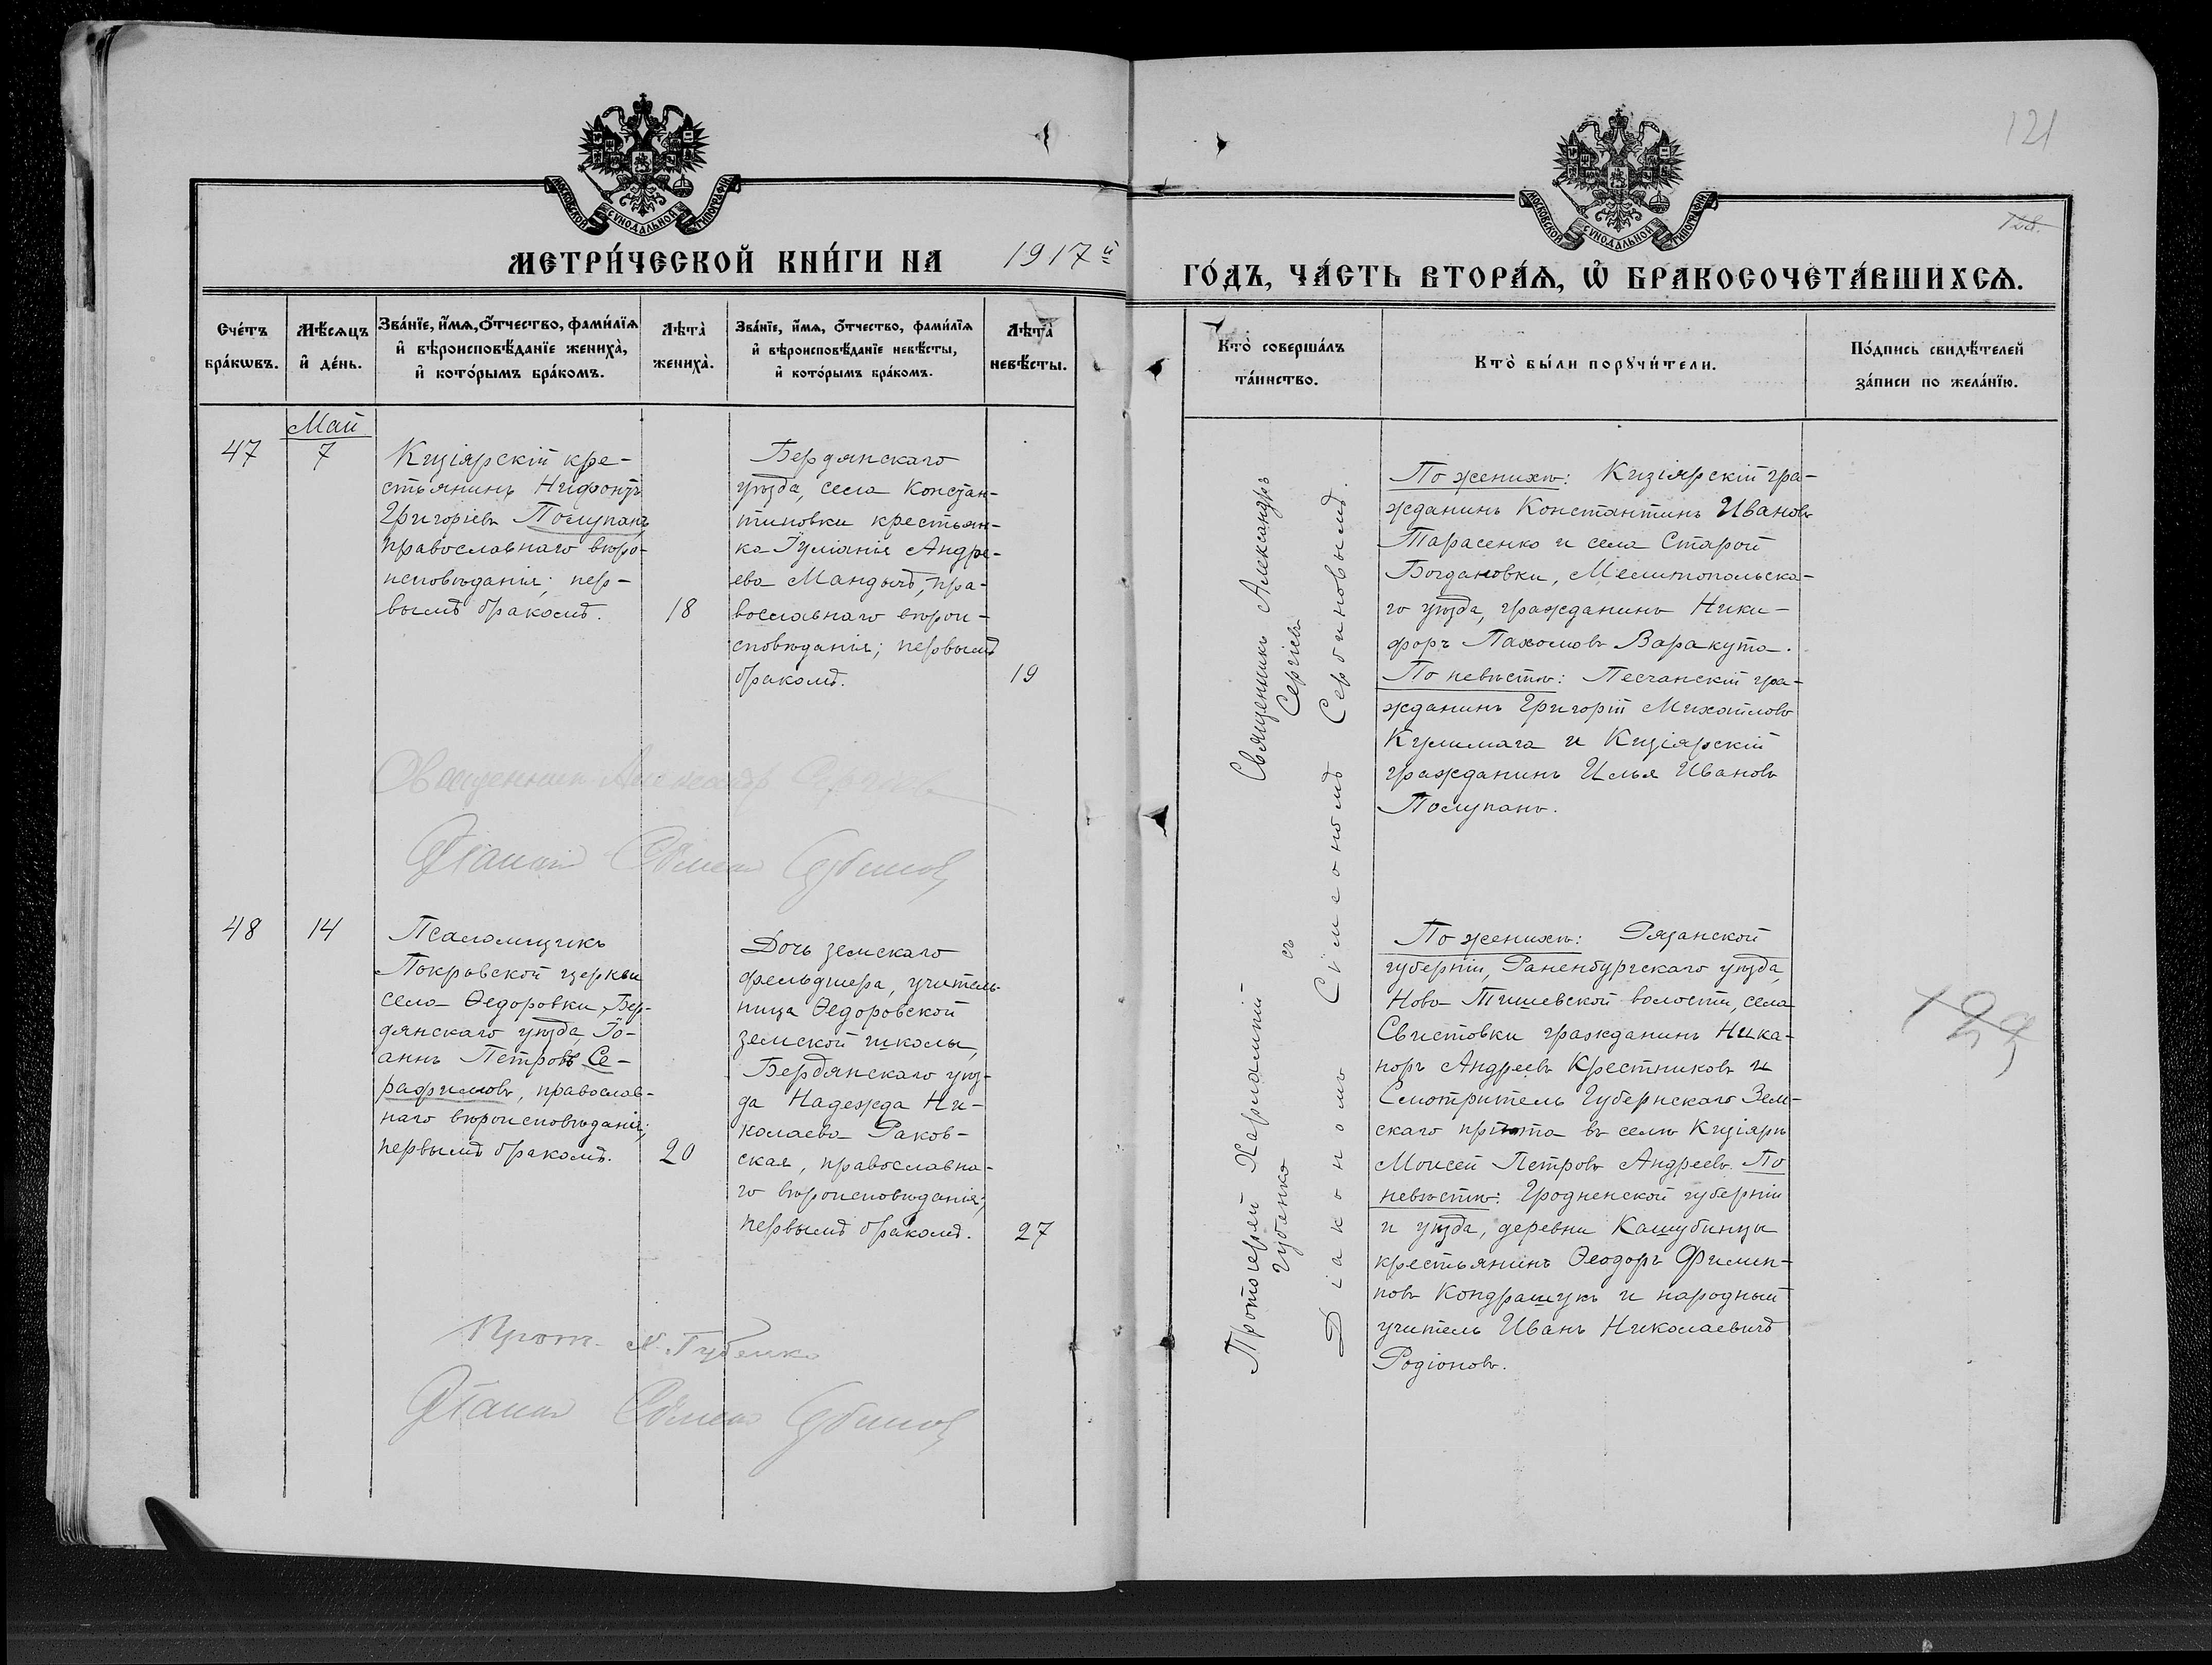 121
128.
МОСКОВСКОЙ СѴНОДАЛЬНОЙ ТИПОГРАФІИ
МОСКОВСКОЙ СѴНОДАЛЬНОЙ ТИПОГРАФІИ
МЕТРИ́ЧЕСКОЙ КНИ́ГИ НА 1917й
ГО́ДЪ, ЧА́СТЬ ВТОРА́Ѧ, Ѽ БРАКОСОЧЕТА́ВШИХСѦ.
Сче́тъ бра́кѡвъ.
Мѣ́сѧцъ и҆ де́нь.
Зва́нїе, и҆́мѧ, ѻ҆́тчество, фами́лїѧ
и҆ вѣроисповѣ́данїе жениха̀,
и҆ кото́рымъ бра́комъ.
Лѣта̀ жениха̀.
Зва́нїе, и҆́мѧ, ѻ҆́тчество, фами́лїѧ
и҆ вѣроисповѣ́данїе невѣ́сты,
и҆ кото́рымъ бра́комъ.
Лѣта̀ невѣ́сты.
Кто̀ соверша́лъ
та́инство.
Кто̀ бы́ли порꙋчи́тели.
По́дпись свидѣ́телей
за́писи по жела́нїю.
Май
47
7
Кизіярскій кре-
стьянинъ Нифонтъ
Григоріевъ Полупанъ,
православнаго вѣро-
исповѣданія; пер-
вымъ бракомъ.
18
Бердянскаго
уѣзда, села Констан-
тиновки крестьян-
ка Іуліанія Андре-
ева Мандычъ, пра-
вославнаго вѣрои-
сповѣданія; первымъ
бракомъ.
19
Священникъ Александръ
Сергіевъ
съ
Діакономъ Сѵмеономъ Сербиновымъ.
По женихѣ: Кизіярскій гра-
жданинъ Константинъ Ивановъ
Тарасенко и села Старой
Богдановки, Мелитопольска-
го уѣзда, гражданинъ Ники-
форъ Пахомовъ Варакута.
По невѣстѣ: Песчанскій гра-
жданинъ Григорій Михайловъ
Кулимага и Кизіярскій
гражданинъ Илья Ивановъ
Полупанъ.
Священникъ Александръ Сергіевъ
Діаконъ Сѵмеонъ Сербиновъ
48
14
Псаломщикъ
Покровской церкви
села Ѳедоровки, Бер-
дянскаго уѣзда, Іо-
аннъ Петровъ Се-
рафимовъ, православ-
наго вѣроисповѣданія;
первымъ бракомъ.
20
Дочь земскаго
фельдшера, учитель-
ница Ѳедоровской
земской школы,
Бердянскаго уѣз-
да Надежда Ни-
колаева Раков-
ская, православна-
го вѣроисповѣданія;
первымъ бракомъ.
27
Протоіерей Харлампій
Губенко
По женихѣ: Рязанской
губерніи, Раненбургскаго уѣзда,
Ново-Тишевской волости, села
Свистовки гражданинъ Ника-
норъ Андреевъ Крестниковъ и
Смотритель Губернскаго Зем-
скаго пріюта въ селѣ Кизіярѣ
Моисей Петровъ Андреевъ. По
невѣстѣ: Гродненской губерніи
и уѣзда, деревни Кашубинцы
крестьянинъ Ѳеодоръ Филип-
повъ Кондрашукъ и народный
учитель Иванъ Николаевичъ
Родіоновъ.
129
Прот. Х. Губенко
Діаконъ Сѵмеонъ Сербиновъ